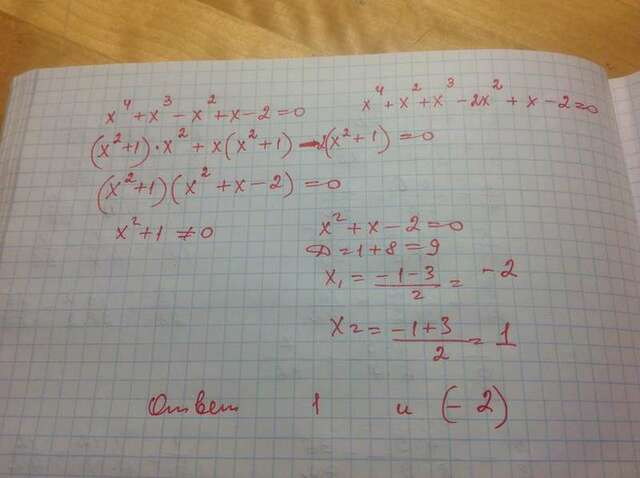 x⁴ + x³ - x² + x - 2 = 0
x⁴ + x² + x³ - 2x² + x - 2 = 0
(x² + 1) · x² + x(x² + 1) - 2(x² + 1) = 0
(x² + 1)(x² + x - 2) = 0
x² + 1 ≠ 0
x² + x - 2 = 0
D = 1 + 8 = 9
x₁ = (-1 - 3)/2 = -2
x₂ = (-1 + 3)/2 = 1
Ответ 1 и (-2)